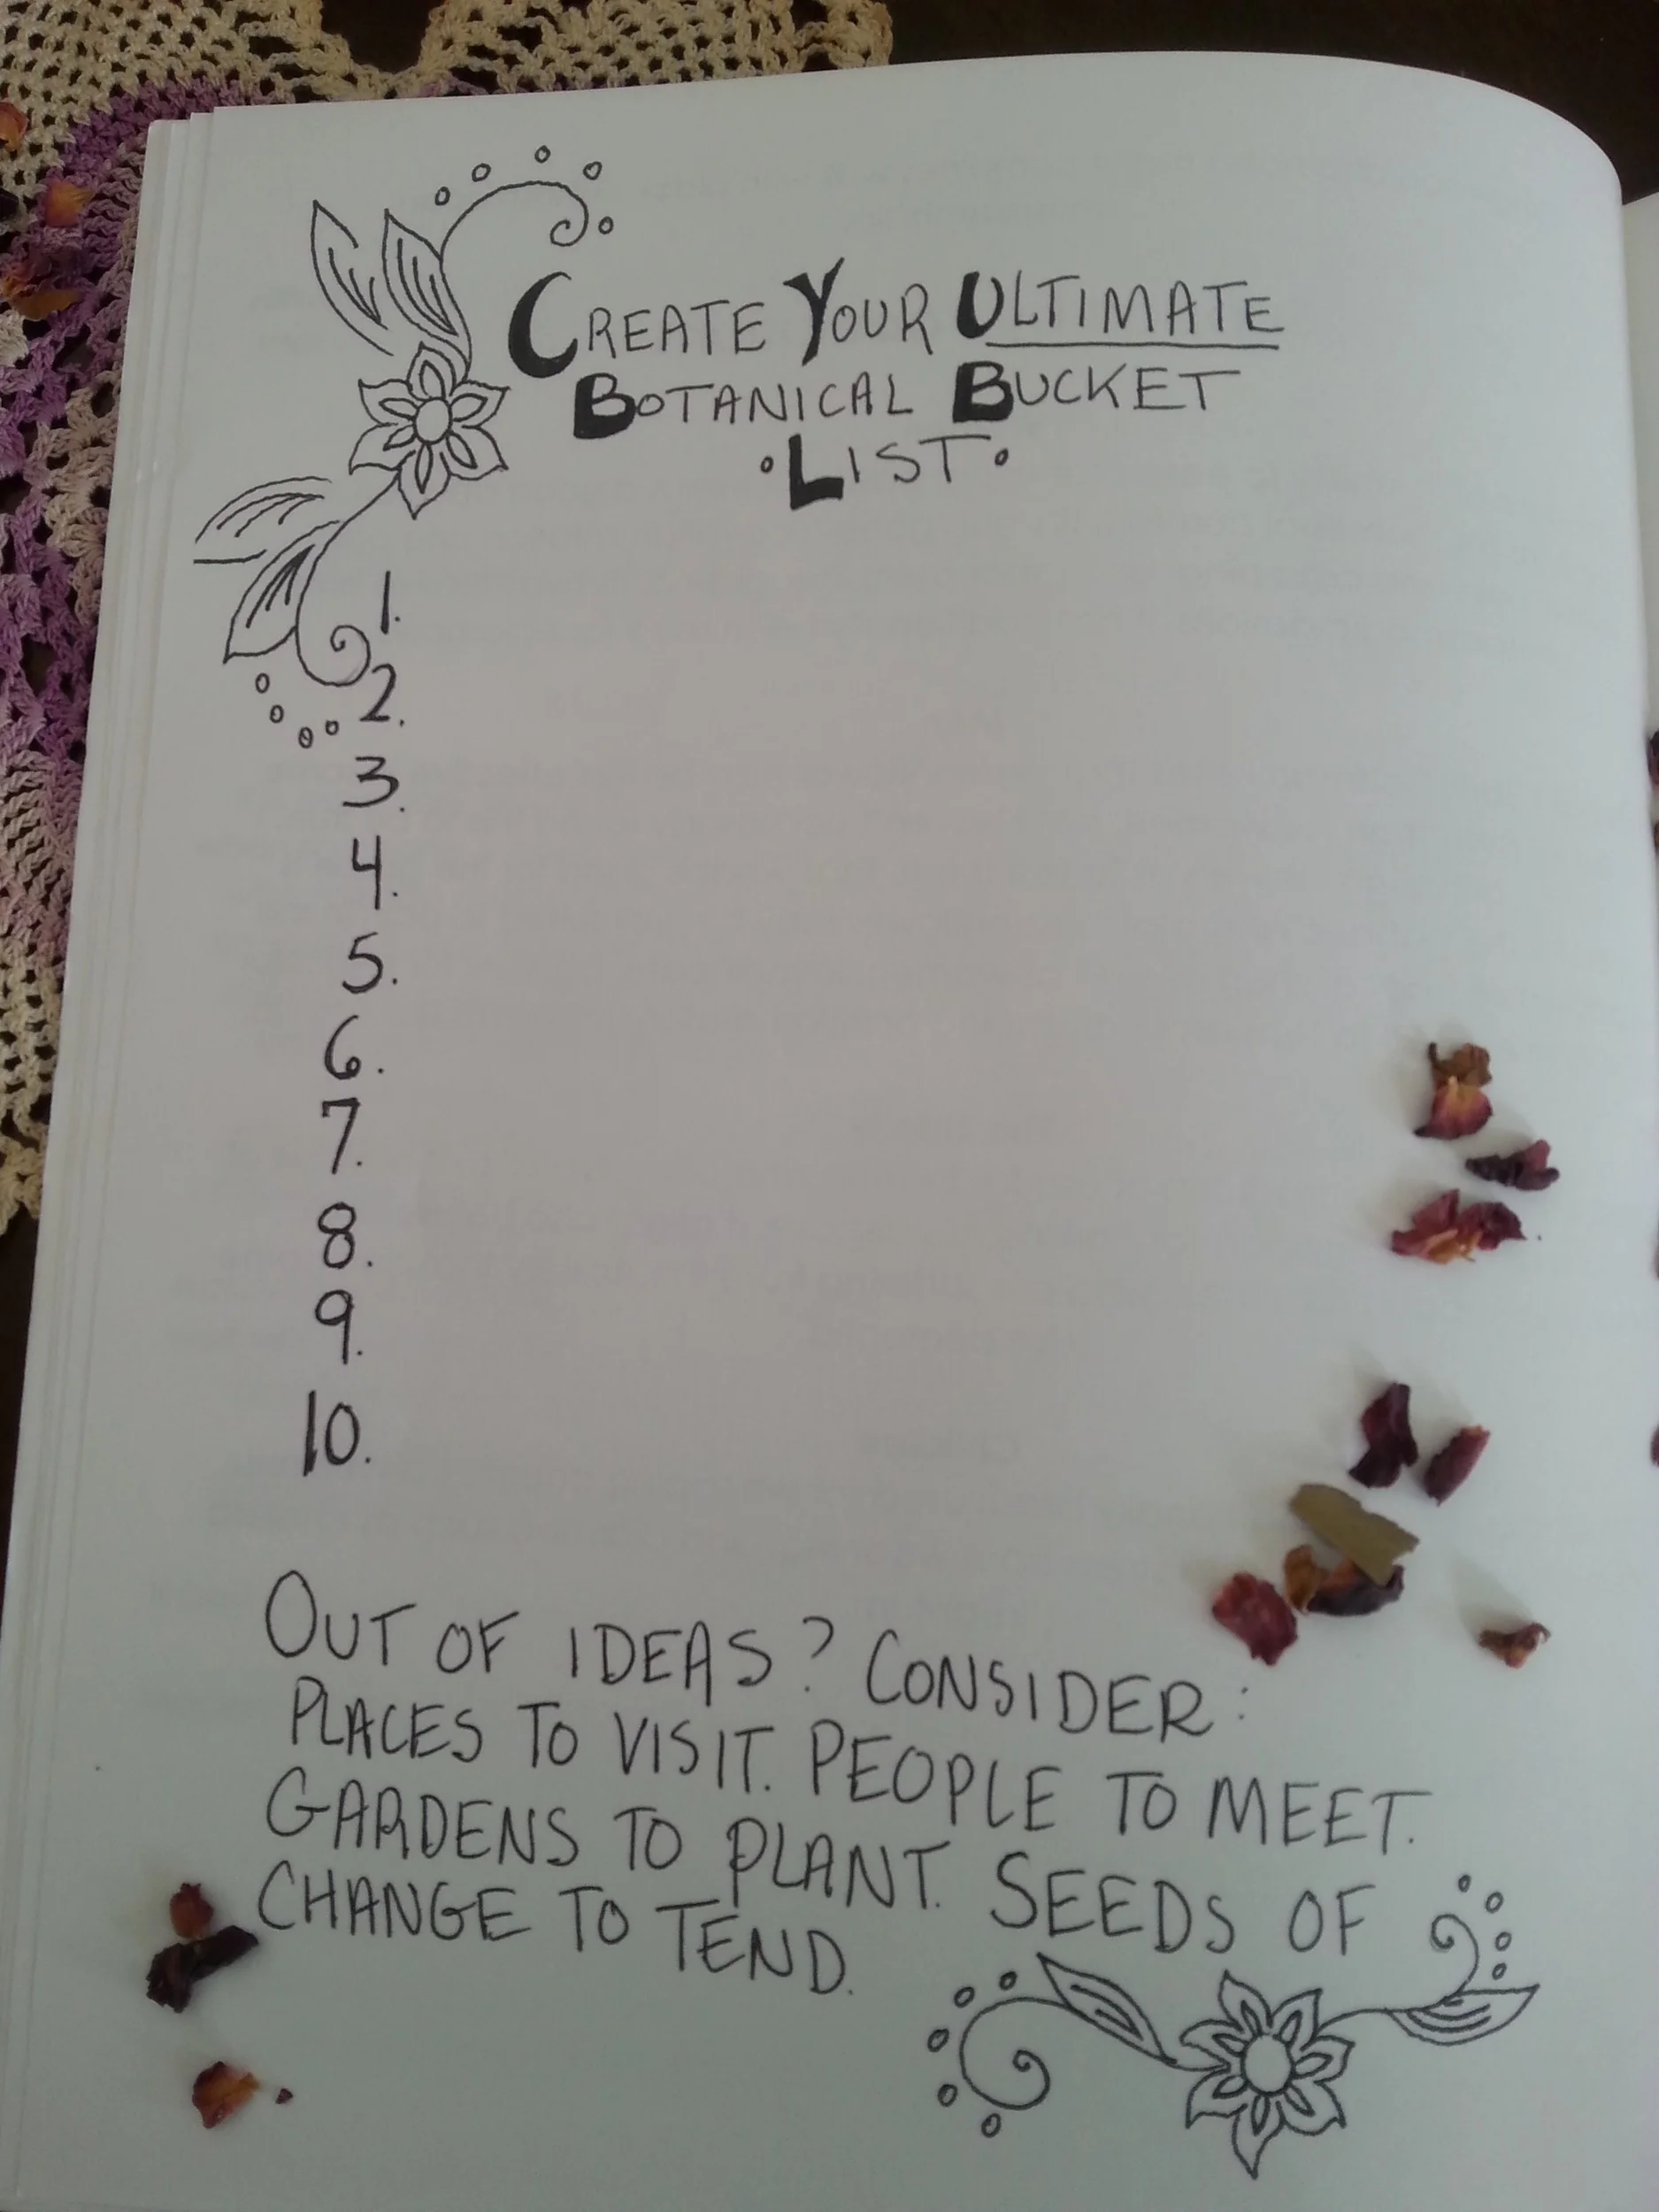 CREATE YOUR ULTIMATE
BOTANICAL BUCKET
•LIST•
1.
2.
3.
4.
5.
6.
7.
8.
9.
10.
OUT OF IDEAS? CONSIDER:
PLACES TO VISIT. PEOPLE TO MEET.
GARDENS TO PLANT. SEEDS OF
CHANGE TO TEND.